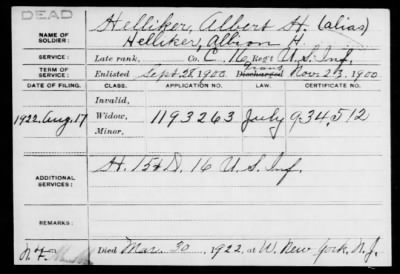 DEAD
NAME OF SOLDIER: Helliker, Albert H. (alias)
Helliker, Albion H.
SERVICE: Late rank, Co. C, 16 Reg't U.S. Inf.
TERM OF SERVICE: Enlisted Sept. 28, 1900 Discharged Nov. 23, 1900
DATE OF FILING. CLASS. APPLICATION NO. LAW. CERTIFICATE NO.
Invalid,
1922 Aug. 17 Widow, 1193263 July 934,512
Minor,
ADDITIONAL SERVICES: H. 15 & D. 16 U.S. Inf.
REMARKS:
Died Mar. 30, 1922, at W. New York, N.J.